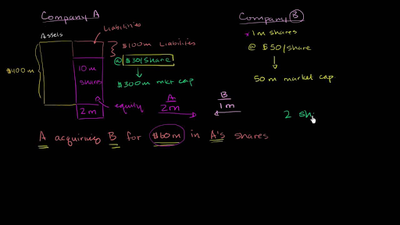 Company A
Company B
Liabilities
Assets
$400m
$100m Liabilities
10m
sham
@ $30/share
$300m mkt cap
2m
equity
A
2m
B
1m
1m shares
@ $50/share
50m market cap
2 sh
A acquiring B for $60m in A's shares